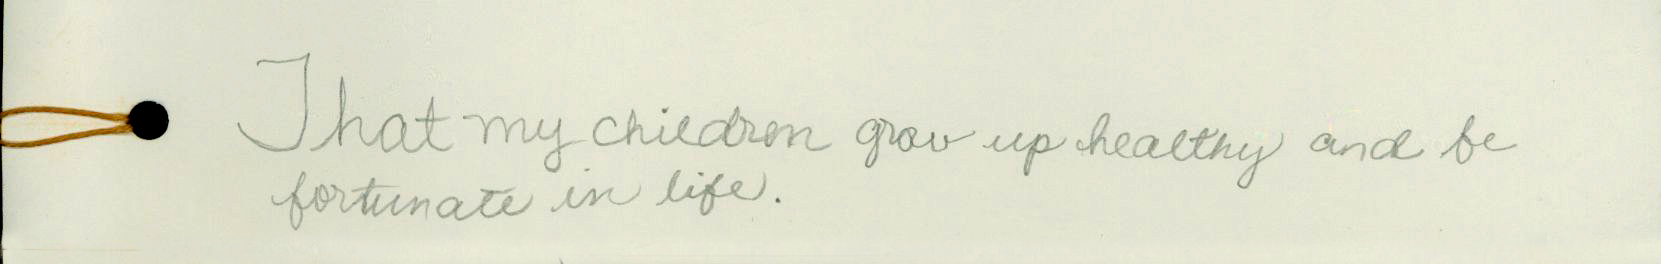 That my children grow up healthy and be
fortunate in life.